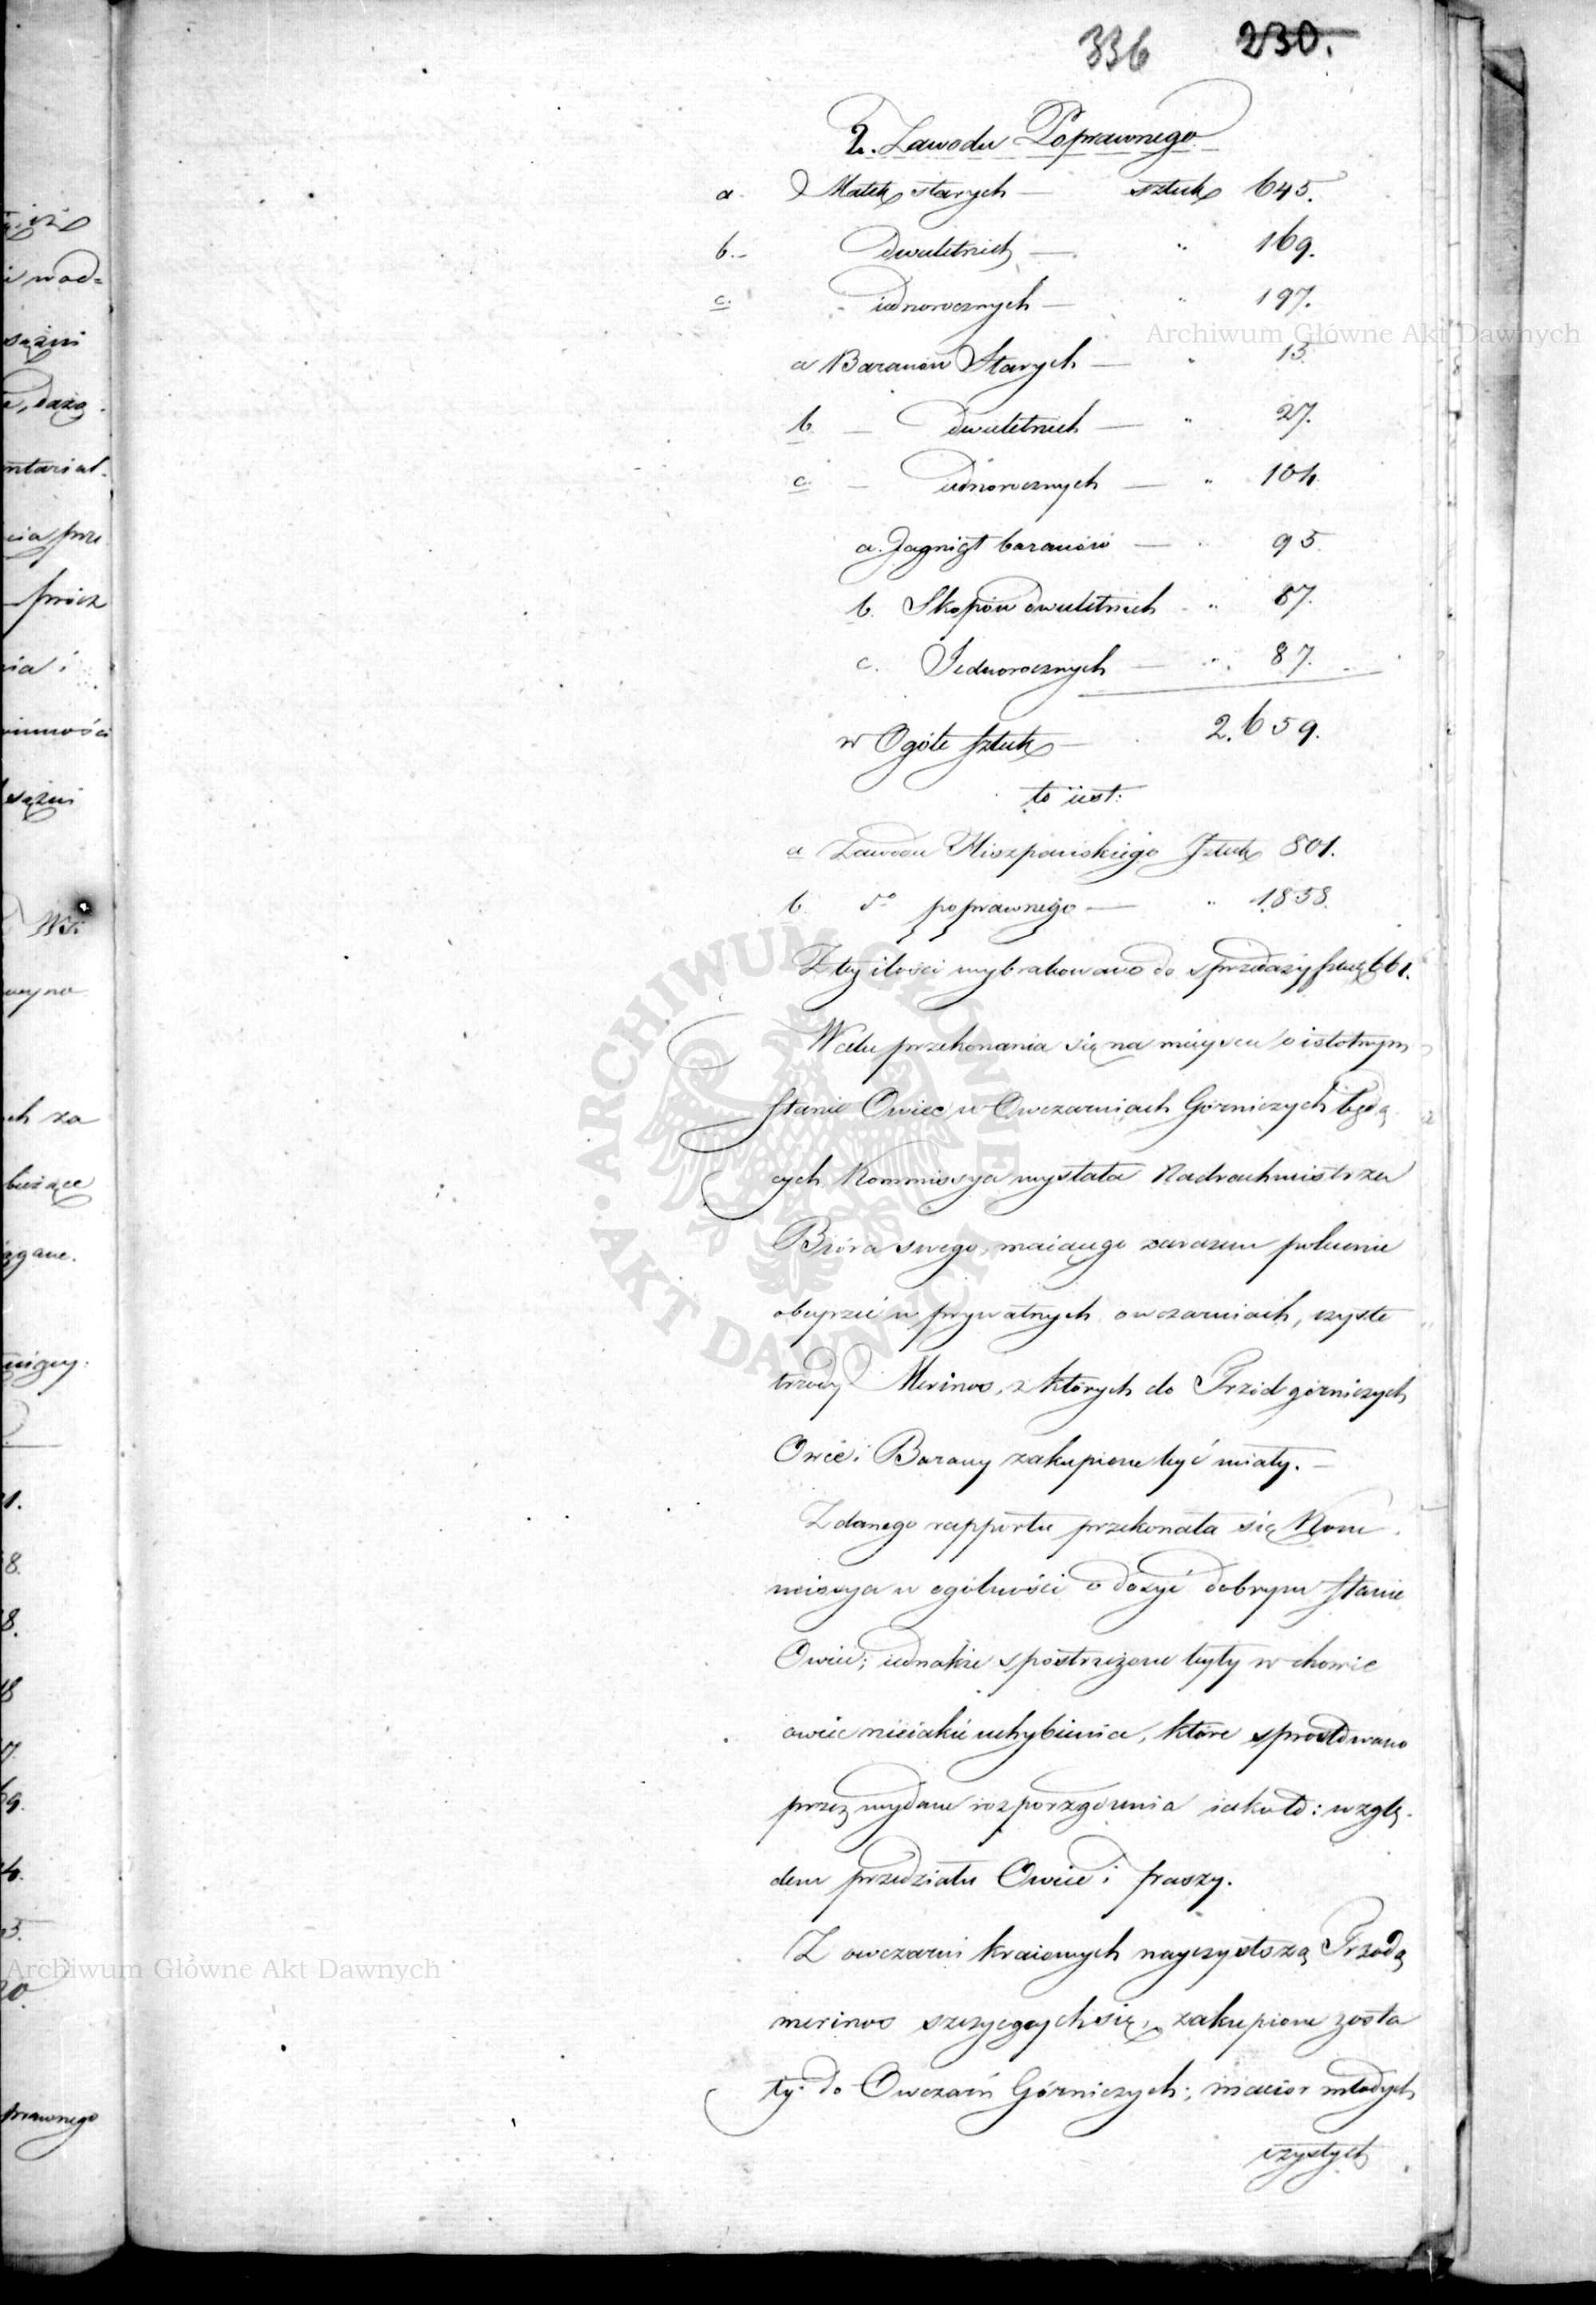 336 230.
2. Zawodu Poprawnego
a. Matek starych — sztuk 645.
b. — dwuletnich — " 169.
c. - iednorocznych — " 197.
a Baranów Starych — " 13.
b. — dwuletnich — " 27.
c. — iednorocznych — " 104.
a. Jagniąt baranów — " 95.
b. Skopów dwuletnich - " 87.
c. Jednorocznych — " 87.
w Ogóle sztuk — 2.659.
to iest:
a Zawodu Hiszpańskiego Sztuk 801.
b. do poprawnego — " 1.858.
Z tey ilości wybrakowano do sprzedaży sztuk 661.
W celu przekonania się na mieyscu o istotnym
stanie Owiec w Owczarniach Górniczych będą
cych Kommissya wysłała Nadrachmistrza
Bióra swego, maiącego zarazem polecenie
obeyrzeć w prywatnych owczarniach, czyste
trzody Merinos, z których do Trzód górniczych
Owce i Barany zakupione być miały. —
Z danego rapportu przekonała się Kom
missya w ogólności o dosyć dobrym stanie
Owiec; iednakże spostrzeżone były w chowie
owiec nieiakie uchybienia, które sprostowano
przez wydane rozporządzenia iakoto: wzglę-
dem przedziału Owiec i paszy.
Z owczarni kraiowych nayczystszą Trzodą
merinos szczycących się, zakupione zosta
ły do Owczarń Górniczych; macior młodych
czystych
i wod=
sążni
ntariał.
cia prze
prócz
nia i
winności
sążni
Ws:
ch za
bieżące
ągane.
1.
8.
8.
18
7.
69.
4.
5.
20.
prawnego
Archiwum Główne Akt Dawnych
Archiwum Główne Akt Dawnych
ARCHIWUM GŁÓWNE AKT DAWNYCH